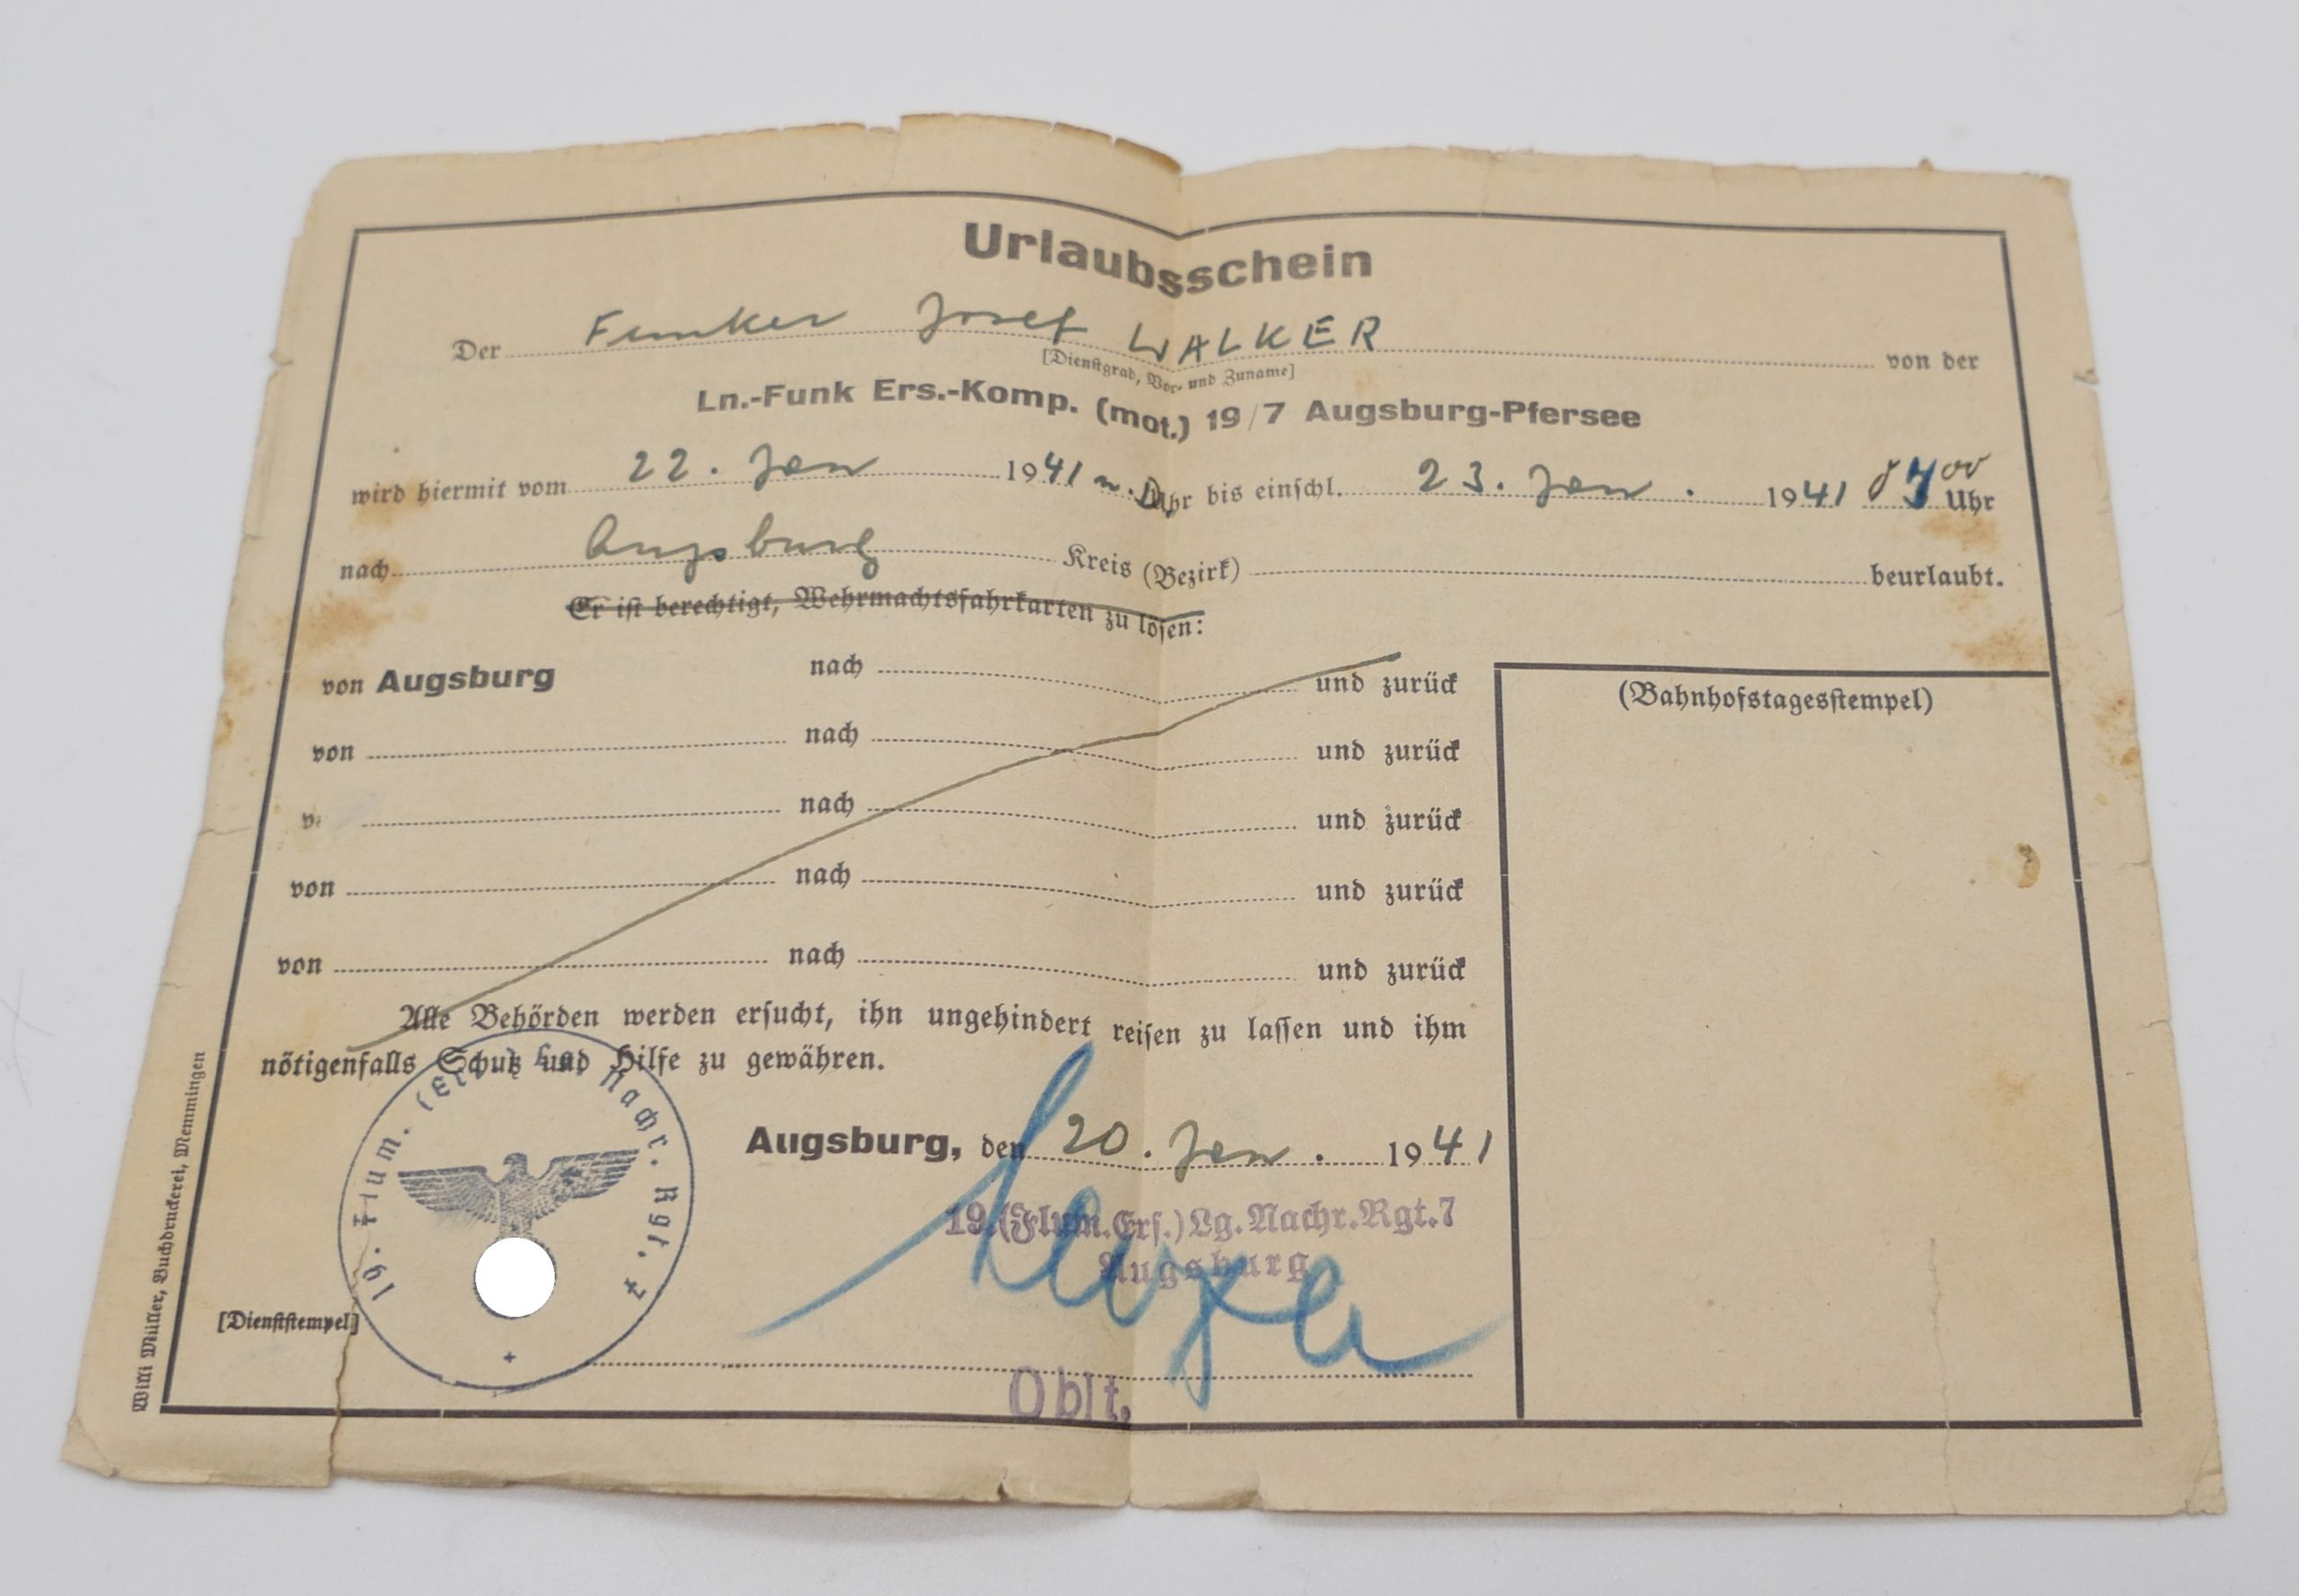 Urlaubsschein
Der Funker Josef WALKER von der
[Dienstgrad, Vor- und Zuname]
Ln.-Funk Ers.-Komp. (mot.) 19/7 Augsburg-Pfersee
wird hiermit vom 22. Jan 1941 n. D. Uhr bis einschl. 23. Jan. 1941 7⁰⁰ Uhr
nach Augsburg Kreis (Bezirk) beurlaubt.
Er ist berechtigt, Wehrmachtsfahrkarten zu lösen:
von Augsburg nach und zurück
von nach und zurück
nach und zurück
von nach und zurück
von nach und zurück
(Bahnhofstagesstempel)
Alle Behörden werden ersucht, ihn ungehindert reisen zu lassen und ihm
nötigenfalls Schutz und Hilfe zu gewähren.
Augsburg, den 20. Jan. 1941
19.(Flum.Ers.)Lg.Nachr.Rgt.7
Augsburg
Oblt.
[Dienststempel]
19. Flum. Nachr. Rgt. 7
Willi Müller, Buchdruckerei, Memmingen